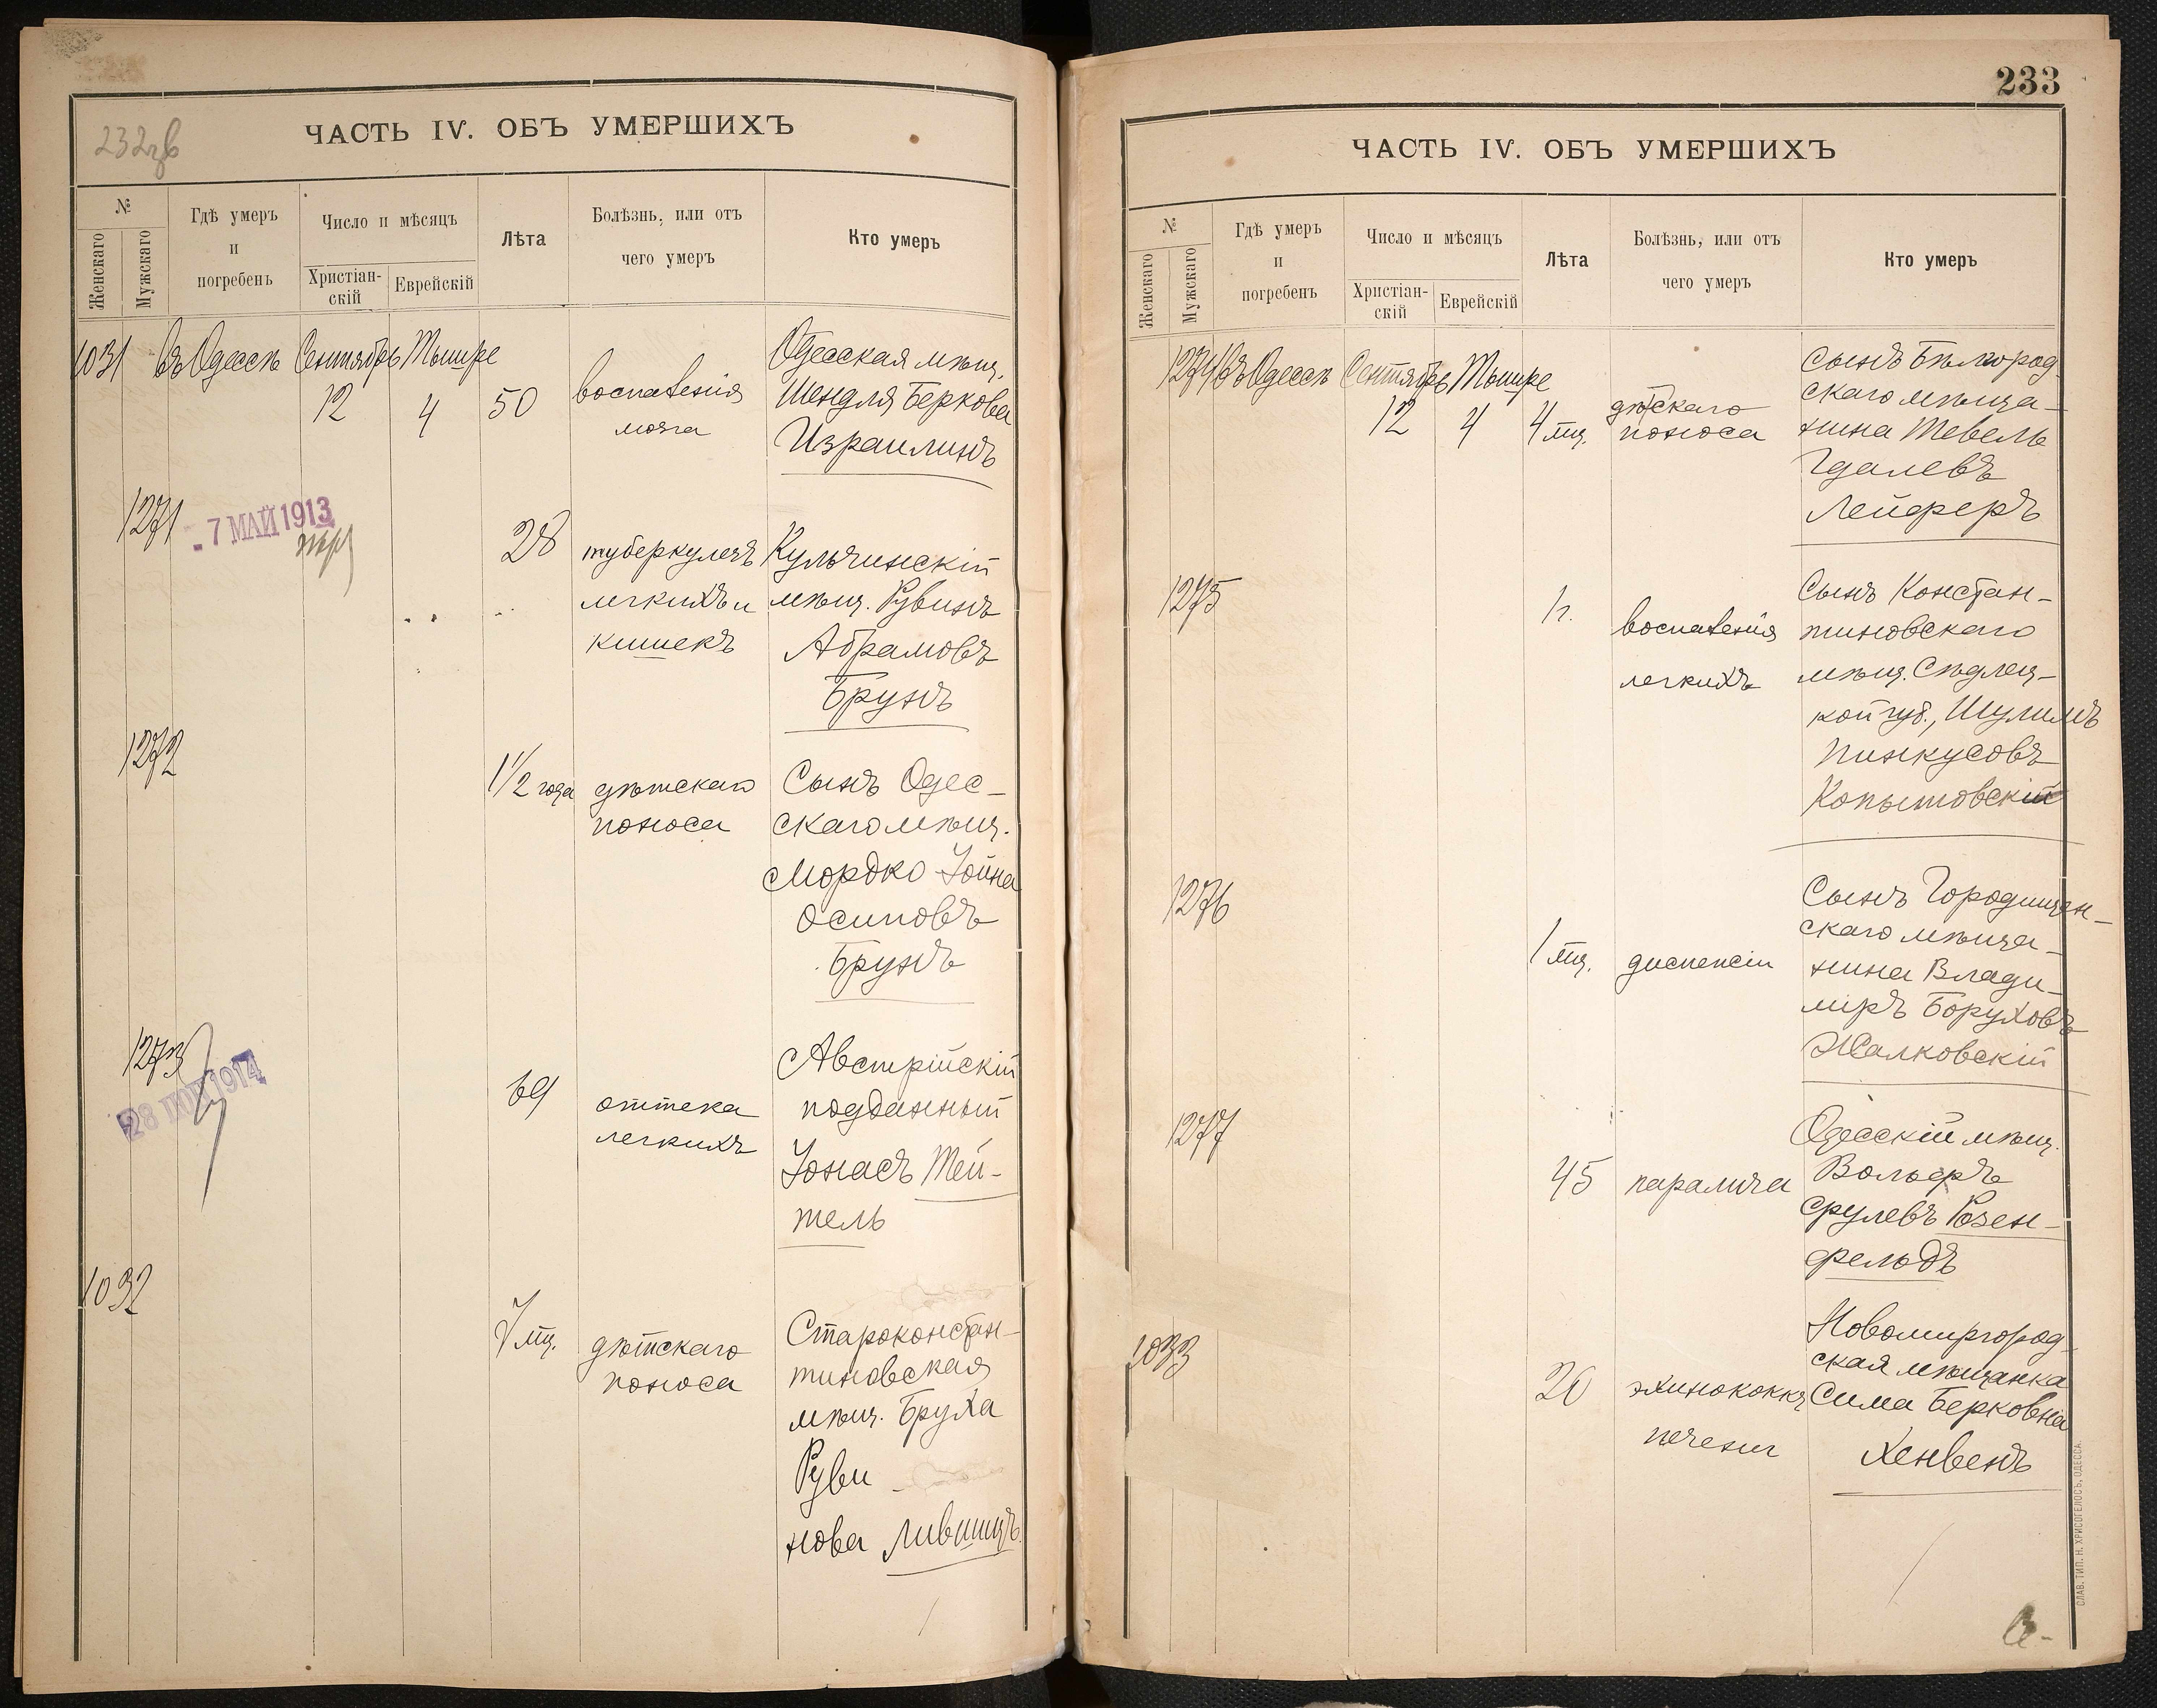 232 об
ЧАСТЬ IV. ОБЪ УМЕРШИХЪ
№
Женскаго
Мужскаго
Гдѣ умеръ
и
погребенъ
Число и мѣсяцъ
Христіан-
скій
Еврейскій
Лѣта
Болѣзнь, или отъ
чего умеръ
Кто умеръ
1031
въ Одессѣ
Сентябрь
12
Тышре
4
50
воспаленія
мозга
Одесская мѣщ.
Шендля Беркова
Израилинъ
1271
7 МАЙ 1913
28
туберкулезъ
легкихъ и
кишекъ
Кульчинскій
мѣщ. Рувинъ
Абрамовъ
Брунъ
1272
1½ года
дѣтскаго
поноса
Сынъ Одес-
скаго мѣщ.
Мордко-Іойна
Осиповъ
Брунъ
1273
69
оттека
легкихъ
Австрійскій
подданный
Іонасъ Тей-
тель
1032
7 мц.
дѣтскаго
поноса
Староконстан-
тиновская
мѣщ. Бруха
Руви-
нова Лившицъ
233
ЧАСТЬ IV. ОБЪ УМЕРШИХЪ
№
Женскаго
Мужскаго
Гдѣ умеръ
и
погребенъ
Число и мѣсяцъ
Христіан-
скій
Еврейскій
Лѣта
Болѣзнь, или отъ
чего умеръ
Кто умеръ
1274
въ Одессѣ
Сентябрь
12
Тышре
4
4 мц.
дѣтскаго
поноса
Сынъ Бѣлгород-
скаго мѣща-
нина Тевель
Гдалевъ
Лейферъ
1275
1 г.
воспаленія
легкихъ
Сынъ Констан-
тиновскаго
мѣщ. Сѣдлец-
кой губ., Шулимъ
Пинкусовъ
Копытовскій
1276
1 мц.
диспепсіи
Сынъ Городищен-
скаго мѣща-
нина Влади-
міръ Боруховъ
Жалковскій
1277
45
паралича
Одесскій мѣщ.
Вольфъ
Срулевъ Розен-
фельдъ
1033
20
эхинококкъ
печени
Новомиргород-
ская мѣщанка
Сима Берковна
Хенвенъ
СЛАВ. ТИП. Н. ХРИСОГЕЛОСЪ, ОДЕССА.